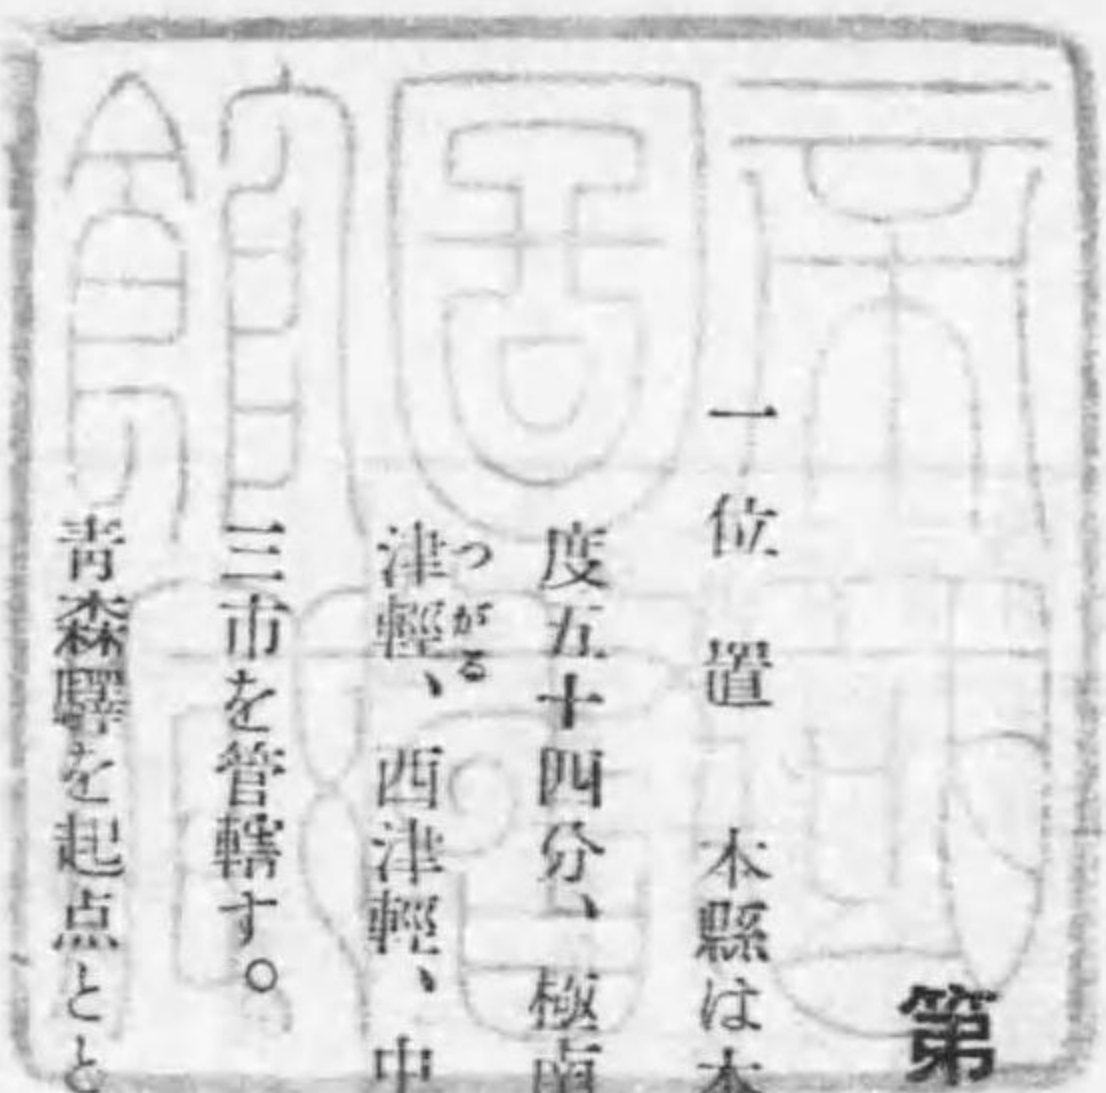 第
一位置 本縣は本
度五十四分、極南
津輕、西津輕、中
つがる
三市を管轄す。
青森驛を起点とと